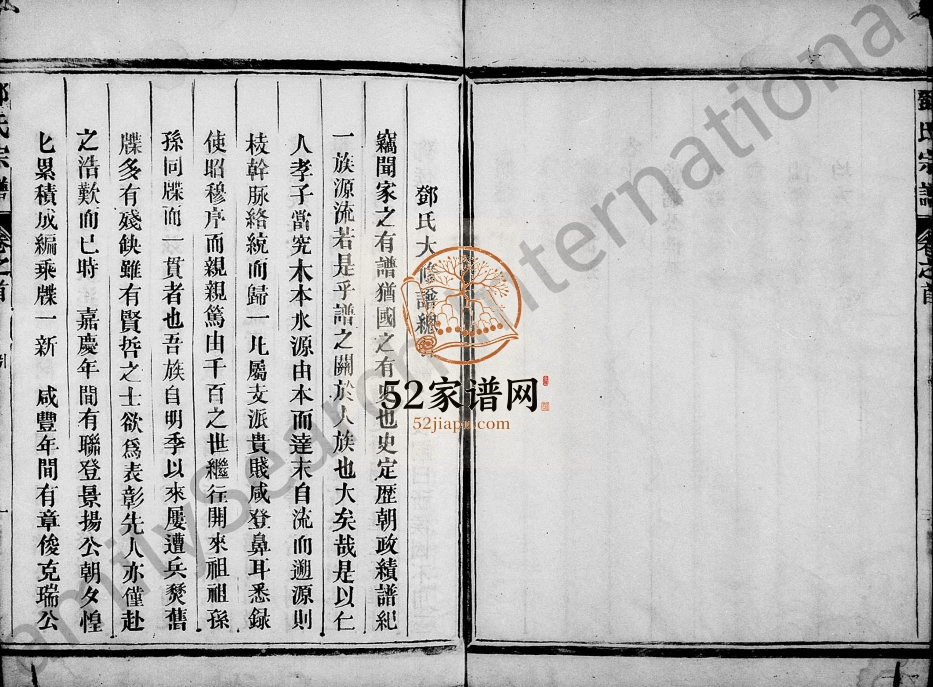 鄧氏大修譜總
竊聞家之有譜猶國之有史也史定歷朝政績譜紀
一族源流若是乎譜之關於人族也大矣哉是以仁
人孝子當究木本水源由本而達末自流而遡源則
枝幹脉絡統而歸一凡屬支派貴賤咸登鼻耳悉録
使昭穆序而親親篤由千百之世繼往開來祖祖孫
孫同牒而一貫者也吾族自明季以來屢遭兵燹舊
牒多有殘缺雖有賢哲之士欲爲表彰先人亦僅赴
之浩歎而已時 嘉慶年間有聯登景揚公朝夕惶
匕累積成編乘牒一新 咸豐年間有章俊克瑞公
鄧氏宗譜 卷之首
鄧氏宗譜 卷之首
52家谱网
52jiapu.com
FamilySearch International